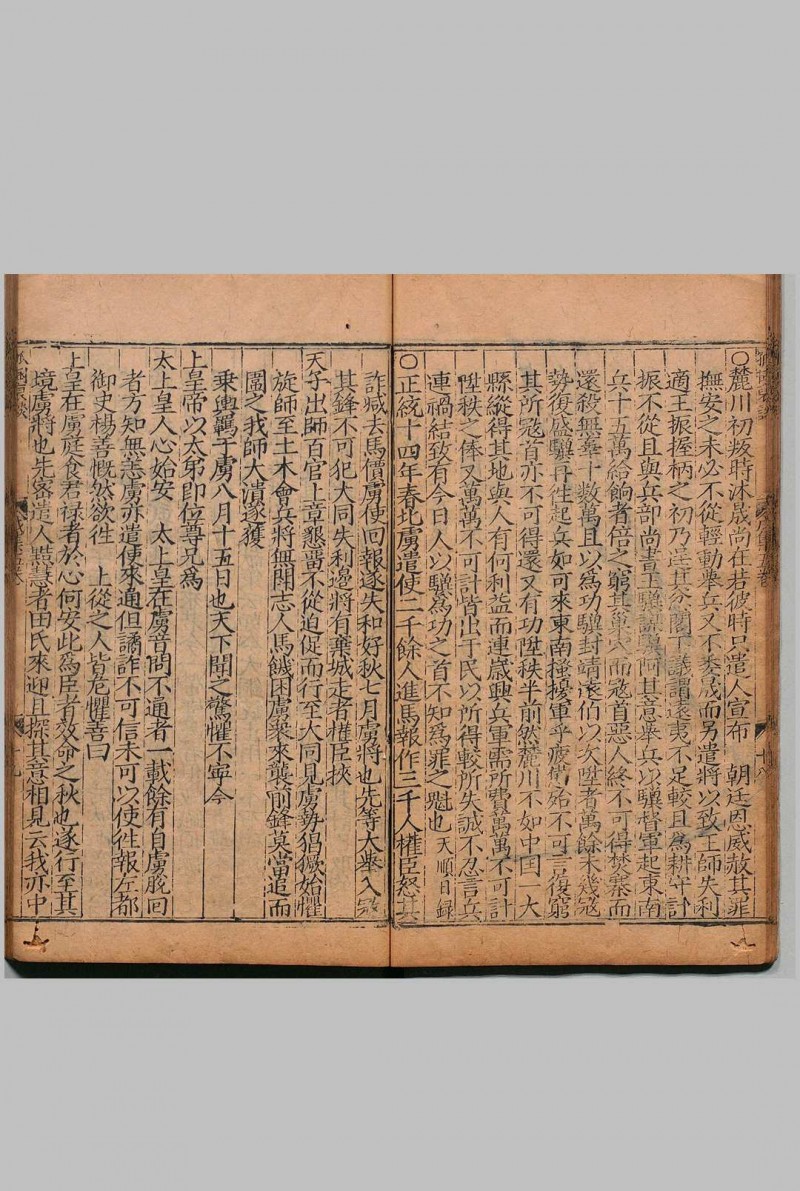 ○麓川初叛時沐晟尚在若彼時只遣人宣布　朝廷恩威赦其罪
撫安之未必不從輕動舉兵又不委晟而另遣將以致王師失利
適王振握柄之初乃逞其忿閣下議謂遠夷不足較且為耕守計
振不從且與兵部尚書王驥謀驥阿其意舉兵以驥督軍起東南
兵十五萬給餉者倍之窮其巢穴而寇首惡人終不可得焚寨而
還殺無辜十數萬且以為功驥封靖遠伯以次陞者萬餘未幾寇
勢復盛驥再徃起兵如可來東南搔擾軍乎疲憊殆不可言復窮
其所寇首亦不可得還又有功陞秩半前然麓川不如中囯一大
縣縱得其地與人有何利益而連歲興兵軍需所費萬萬不可計
陞秩之俸又萬萬不可計皆出于民以所得較所失誠不忍言兵
連禍結致有今日人以驥為功之首不知為罪之魁也天順日録
○正統十四年春北虜遣使二千餘人進馬報作三千人權臣怒其
詐減去馬價虜使回報遂失和好秋七月虜將也先等大舉入寇
其鋒不可犯大同失利邊將有棄城走者權臣挾
天子出師百官上章懇畱不從迫促而行至大同見虜勢猖獗始懼
旋師至土木會兵將無鬪志人馬饑困虜衆來襲前鋒莫當追而
圍之我師大潰遂獲
乘輿羈于虜八月十五日也天下聞之驚懼不寧今
上皇帝以太弟即位尊兄為
太上皇人心始安　太上皇在虜音問不通者一載餘有自虜脫回
者方知無恙虜亦遣使來通但譎詐不可信未可以使徃報左都
御史楊善慨然欲徃　上從之人皆危懼善曰
上皇在虜庭食君禄者於心何安此為臣者效命之秋也遂行至其
境虜將也先密遣人黠慧者田氏來迎且探其意相見云我亦中
十八
十九